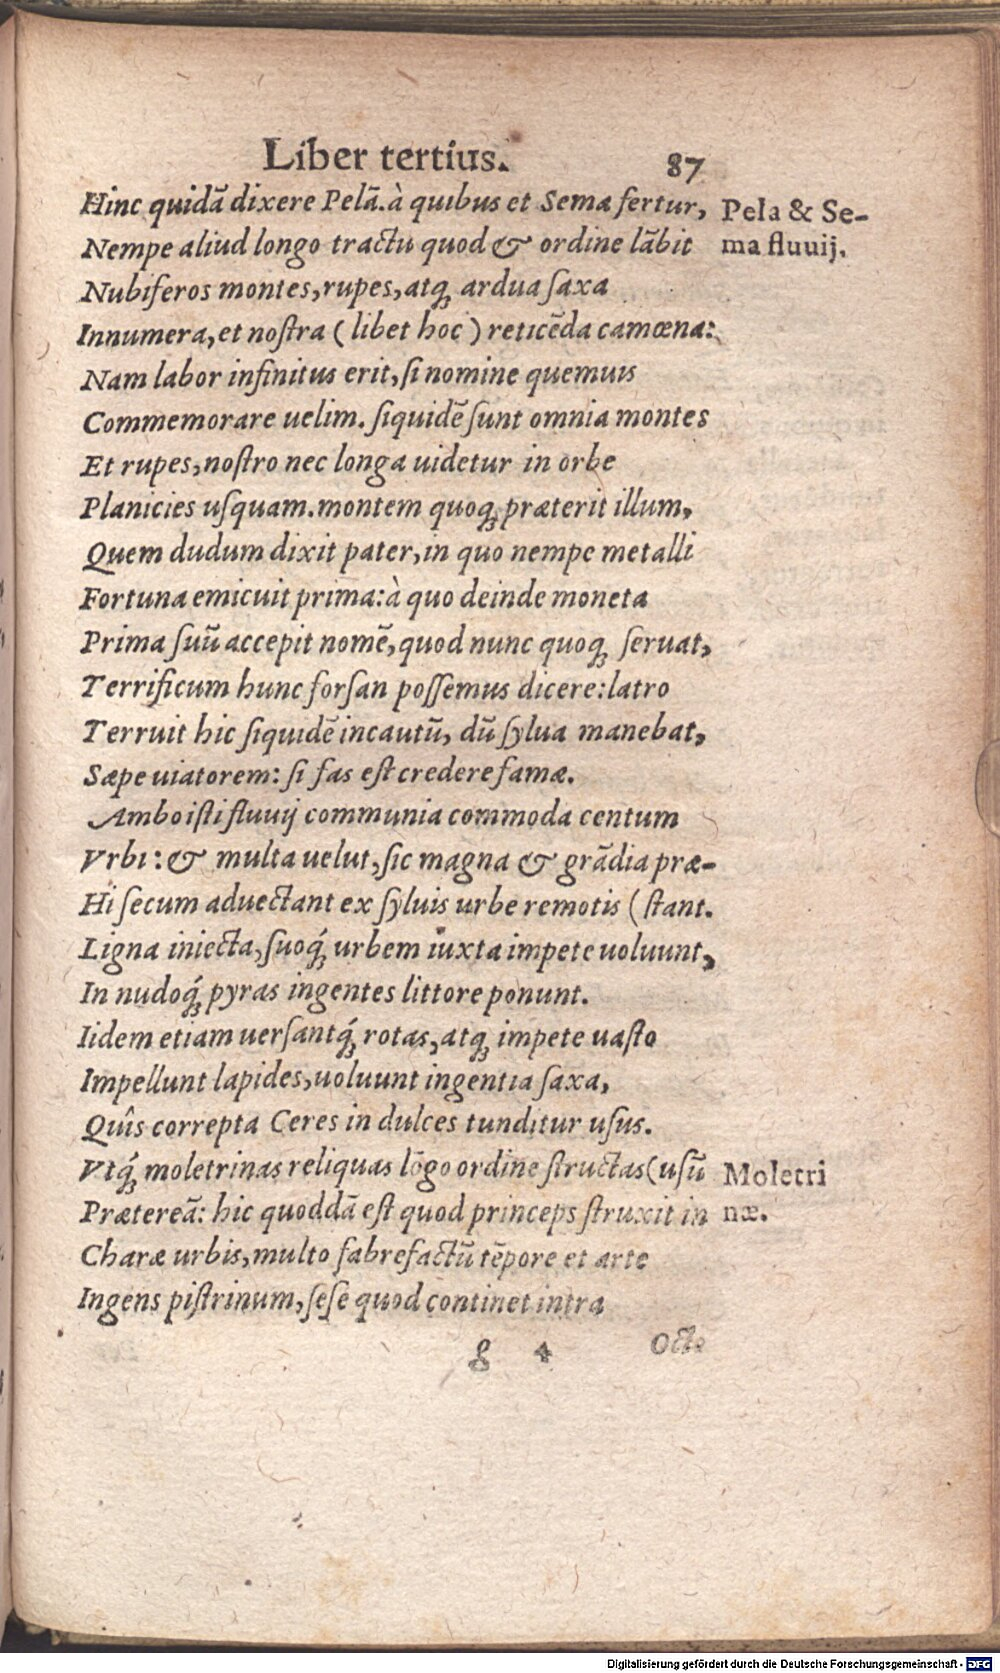 Liber tertius. 87
Hinc quidã dixere Pelã. à quibus et Sema fertur,
Pela & Se-
Nempe aliud longo tractu quod & ordine lãbit
ma fluuij.
Nubiferos montes, rupes, atq; ardua ſaxa
Innumera, et noſtra (libet hoc) reticẽda camœna:
Nam labor infinitus erit, ſi nomine quemuis
Commemorare uelim. ſiquidẽ ſunt omnia montes
Et rupes, noſtro nec longa uidetur in orbe
Planicies uſquam. montem quoq; præterit illum,
Quem dudum dixit pater, in quo nempe metalli
Fortuna emicuit prima: à quo deinde moneta
Prima ſuũ accepit nomẽ, quod nunc quoq; ſeruat,
Terrificum hunc forſan poſſemus dicere: latro
Terruit hic ſiquidẽ incautũ, dũ ſylua manebat,
Sæpe uiatorem: ſi fas eſt credere famæ.
Ambo iſti fluuij communia commoda centum
Vrbi: & multa uelut, ſic magna & grãdia præ-
Hi ſecum aduectant ex ſyluis urbe remotis (ſtant.
Ligna iniecta, ſuoq́; urbem iuxta impete uoluunt,
In nudoq́; pyras ingentes littore ponunt.
Iidem etiam uerſantq́; rotas, atq; impete uaſto
Impellunt lapides, uoluunt ingentia ſaxa,
Quîs correpta Ceres in dulces tunditur uſus.
Vtq́; moletrinas reliquas lõgo ordine ſtructas (uſũ
Moletri
Prætereã: hic quoddã eſt quod princeps ſtruxit in
næ.
Charæ urbis, multo fabrefactũ tẽpore et arte
Ingens piſtrinum, ſeſe quod continet intra
g 4 Octo
Digitalisierung gefördert durch die Deutsche Forschungsgemeinschaft - DFG